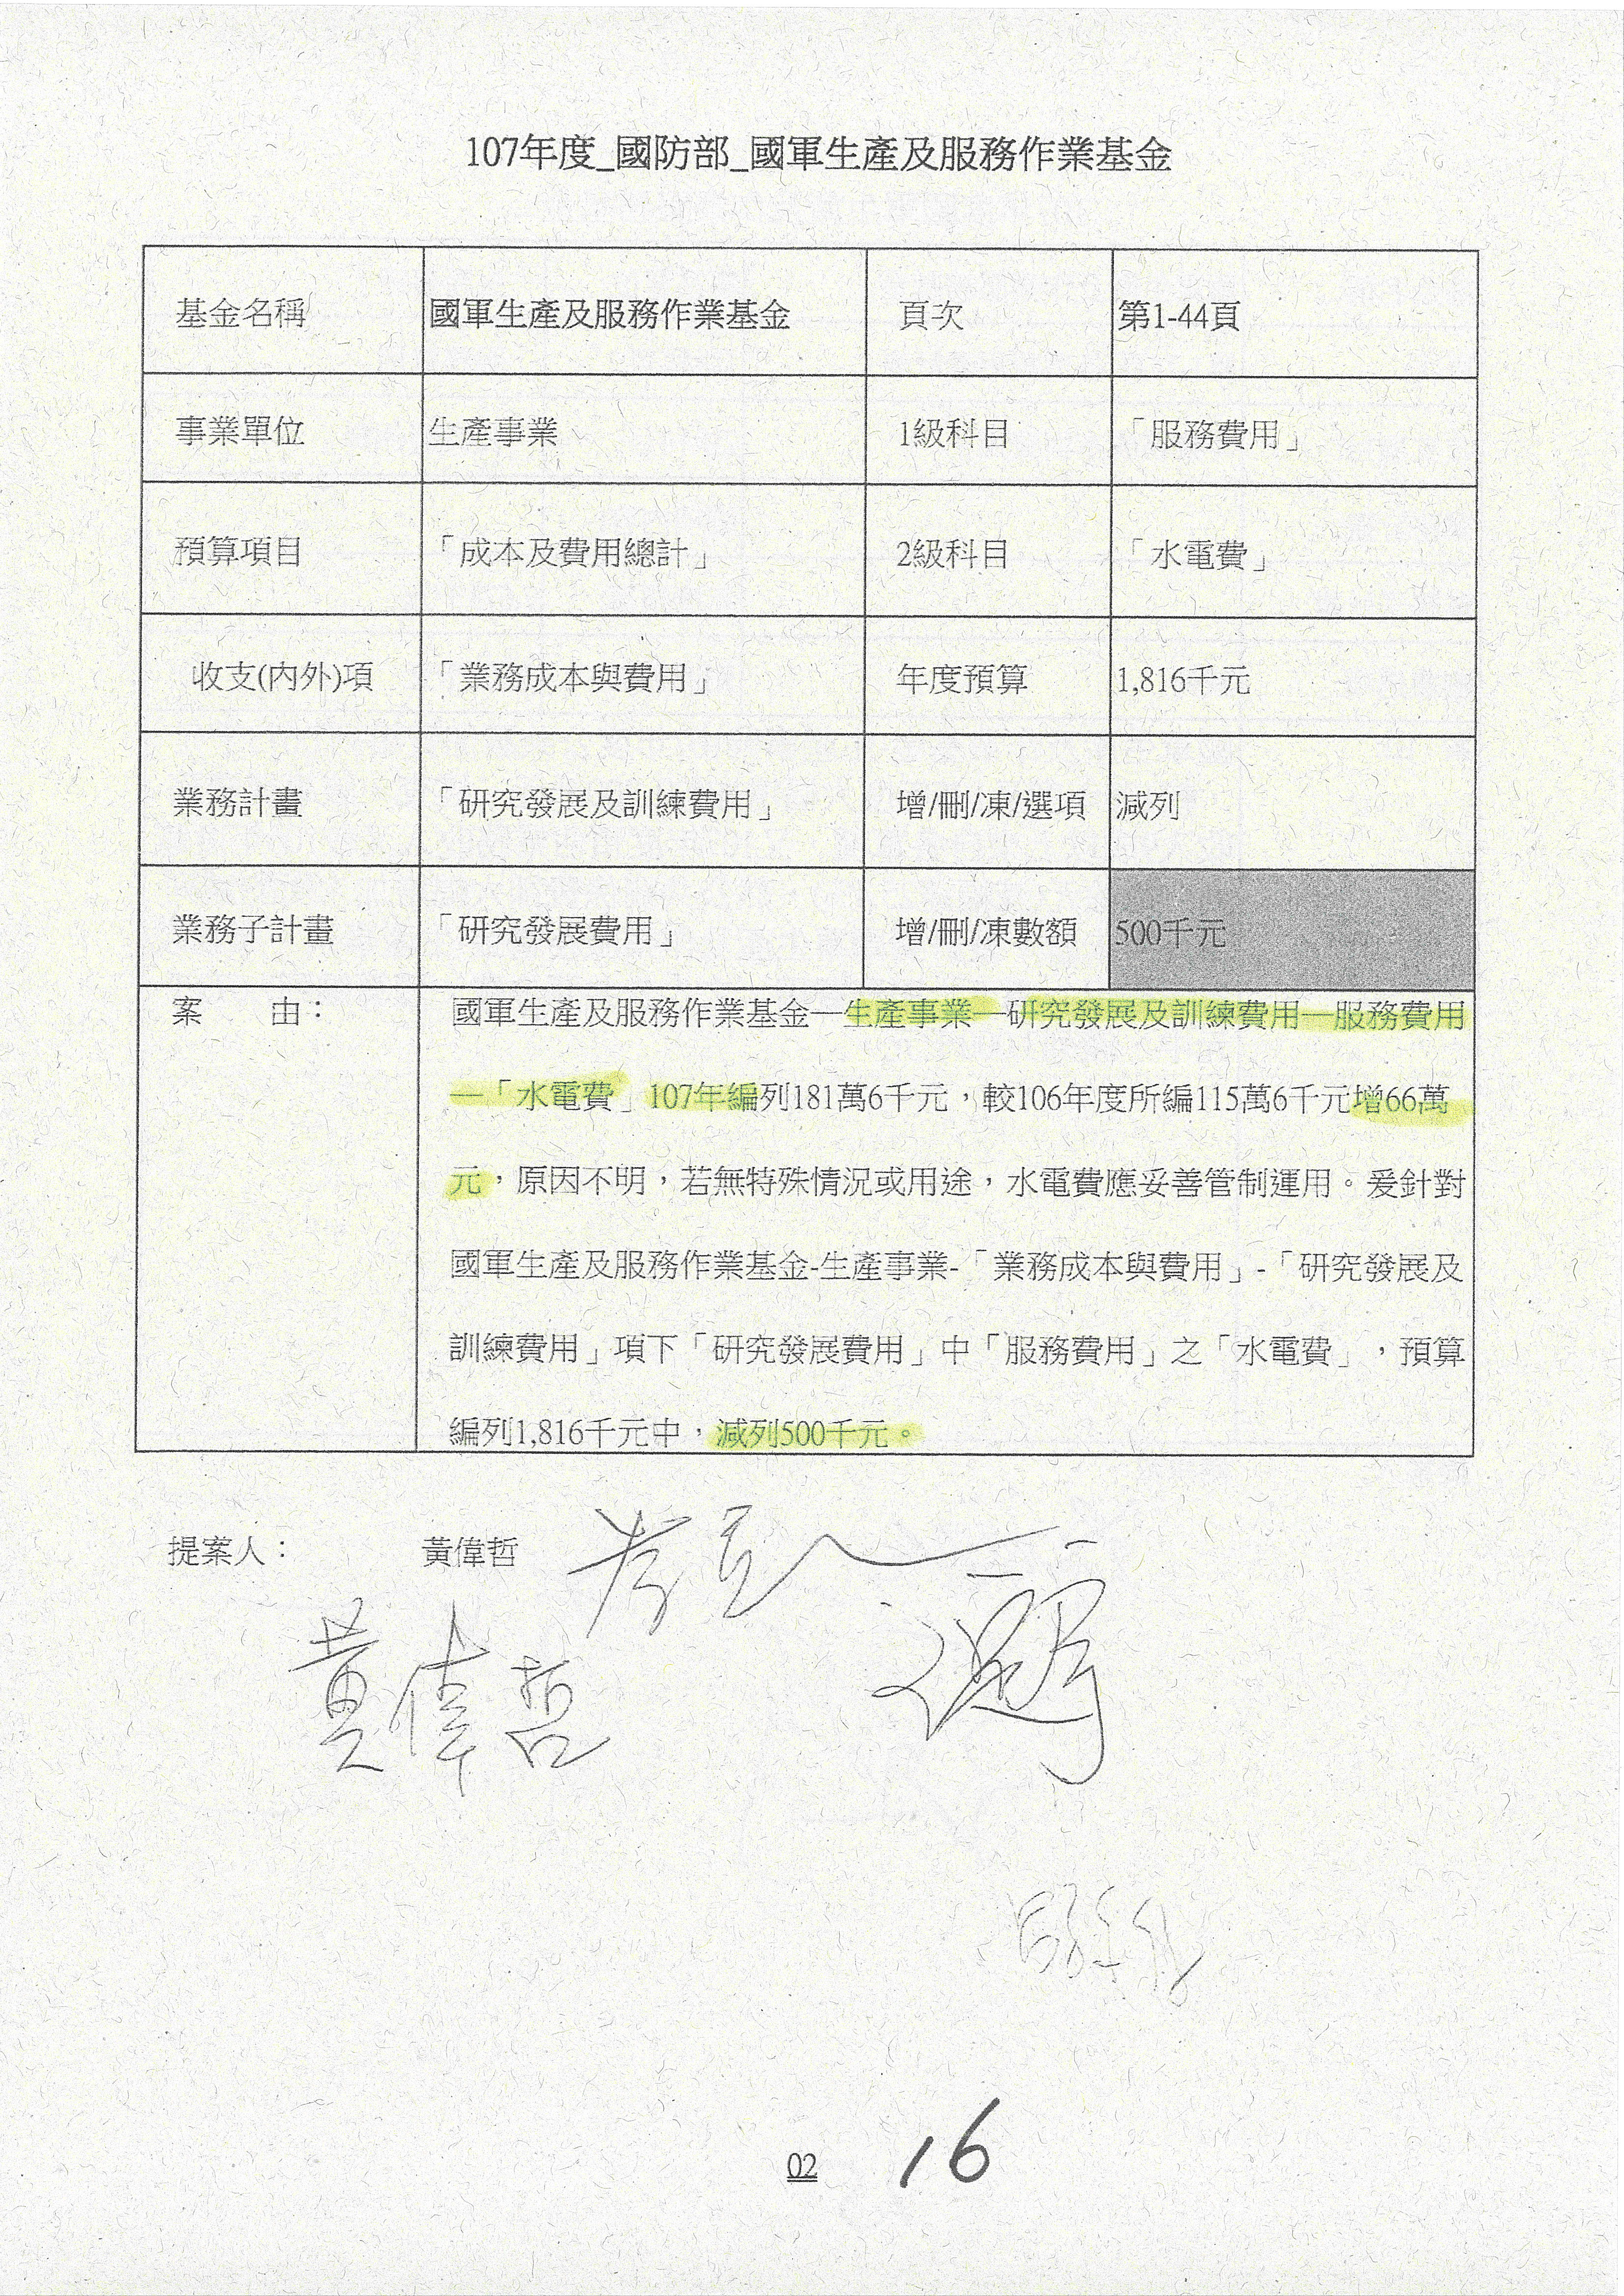 107年度_國防部_國軍生產及服務作業基金
基金名稱 國軍生產及服務作業基金 頁次 第1-44頁
事業單位 生產事業 1級科目 「服務費用」
預算項目 「成本及費用總計」 2級科目 「水電費」
收支(內外)項 「業務成本與費用」 年度預算 1,816千元
業務計畫 「研究發展及訓練費用」 增/刪/凍/選項 減列
業務子計畫 「研究發展費用」 增/刪/凍數額 500千元
案　由： 國軍生產及服務作業基金—生產事業—研究發展及訓練費用—服務費用
—「水電費」107年編列181萬6千元，較106年度所編115萬6千元增66萬
元，原因不明，若無特殊情況或用途，水電費應妥善管制運用。爰針對
國軍生產及服務作業基金-生產事業-「業務成本與費用」-「研究發展及
訓練費用」項下「研究發展費用」中「服務費用」之「水電費」，預算
編列1,816千元中，減列500千元。
提案人： 黃偉哲
黃偉哲
02 16